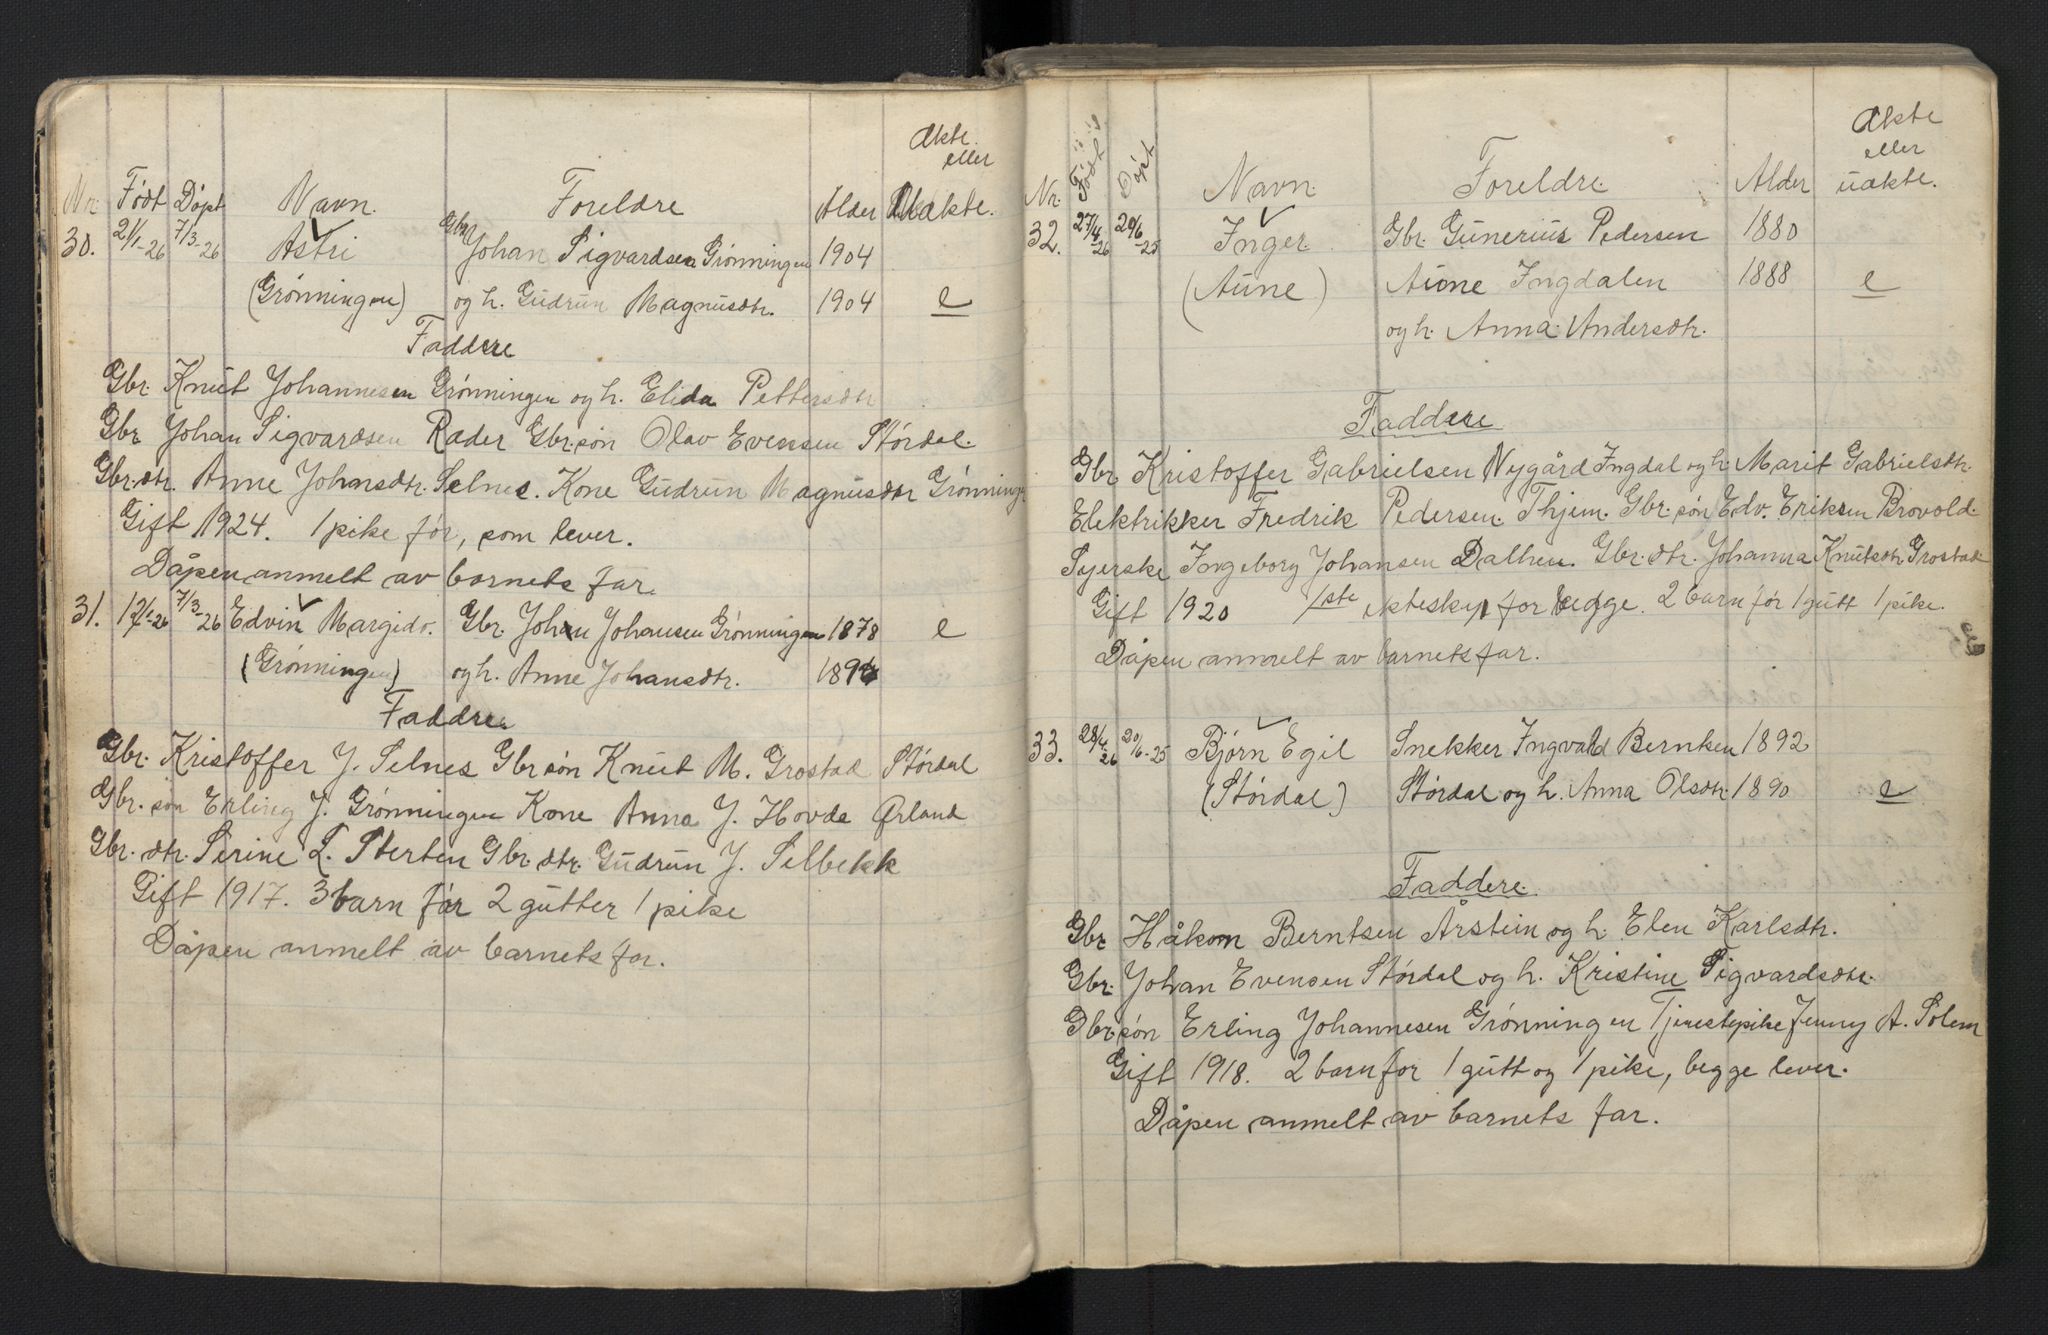 Ækte
eller
Nr. Født Døpt Navn. Foreldre Alder Uækte.
30. 21/1-26 7/3-26 Astri Gbr. Johan Sigvardsen Grønningen 1904
(Grønningen) og h. Gudrun Magnusdtr. 1904 e
Faddere
Gbr. Knut Johannesen Grønningen og h. Elida Pettersdtr
Gbr Johan Sigvardsen Rader Gbr.søn Olav Evensen Størdal.
Gbr.dtr. Anne Johnsdtr. Selnes. Kone Gudrun Magnusdtr Grønningen
Gift 1924. 1 pike før, som lever.
Dåpen anmelt av barnets far.
31. 7/3-26 Edvin Margido. Gbr. Johan Johansen Grønningen 1878 e
(Grønningen) og h. Anne Johansdtr.
Faddere
Gbr. Kristoffer J. Selnes Gbr søn Knut M. Grostad Størdal
Gbr. søn Erling J. Grønningen Kone Anna J. Hovde Ørland
Gbr. dtr. Serine L. Sterten Gbr. dtr. Gudrun J. Selbekk
Gift 1917. 3 barn før 2 gutter 1 pike
Dåpen anmelt av barnets far.
Ækte
eller
Nr. Født Døpt Navn. Foreldre. Alder uækte.
32. 27/4-26 20/6-25 Inger. Gbr. Gunerius Pedersen 1880
(Aune) Aune Ingdalen 1888 e
og h. Anna Andersdtr.
Faddere
Gbr Kristoffer Gabrielsen Nygård Ingdal og h. Marit Gabrielsdtr.
Elektrikker Fredrik Pedersen Thjem. Gbr. søn Edv. Eriksen Brovold.
Syerske Ingeborg Johansen Dalhen. Gbr. dtr. Johanna Knutsdtr. Grostad
Gift 1920 1ste ekteskap for begge. 2 barn før 1 gutt 1 pike.
Dåpen anmelt av barnets far.
33. 28/4-26 20/6-25 Bjørn Egil Snekker Ingvald Berntsen 1892
(Størdal) Størdal og h. Anna Olsdtr. 1890 e
Faddere.
Gbr Håkon Berntsen Årstein og h. Elen Karlsdtr.
Gbr. Johan Evensen Størdal og h. Kristine Sigvardsdtr.
Gbr.søn Erling Johannesen Grønningen Tjenestepike Jenny A. Solem
Gift 1918. 2 barn før 1 gutt og 1 pike, begge lever.
Dåpen anmelt av barnets far.